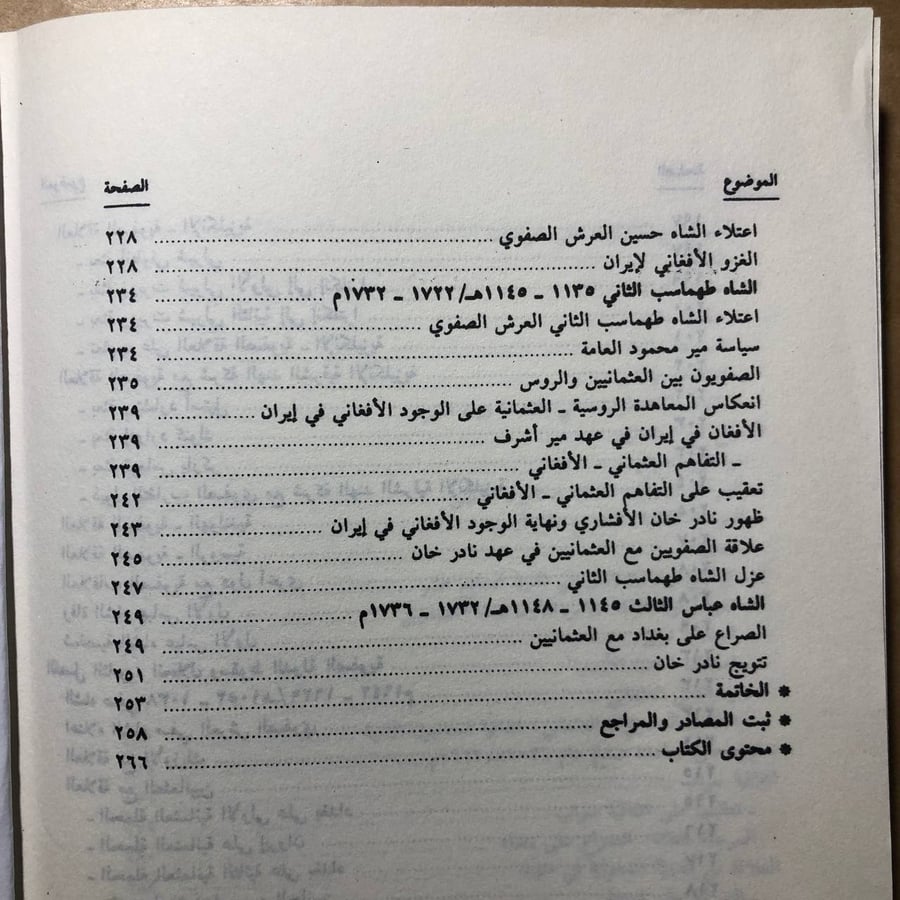 الموضوع الصفحة
اعتلاء الشاه حسين العرش الصفوي ................ ٢٢٨
الغزو الأفغاني لإيران ................ ٢٢٨
الشاه طهماسب الثاني ١١٣٥ ـ ١١٤٥هـ/١٧٢٢ ـ ١٧٣٢م ................ ٢٣٤
اعتلاء الشاه طهماسب الثاني العرش الصفوي ................ ٢٣٤
سياسة مير محمود العامة ................ ٢٣٤
الصفويون بين العثمانيين والروس ................ ٢٣٥
انعكاس المعاهدة الروسية ـ العثمانية على الوجود الأفغاني في إيران ................ ٢٣٩
الأفغان في إيران في عهد مير أشرف ................ ٢٣٩
ـ التفاهم العثماني ـ الأفغاني ................ ٢٣٩
تعقيب على التفاهم العثماني ـ الأفغاني ................ ٢٤٢
ظهور نادر خان الأفشاري ونهاية الوجود الأفغاني في إيران ................ ٢٤٣
علاقة الصفويين مع العثمانيين في عهد نادر خان ................ ٢٤٥
عزل الشاه طهماسب الثاني ................ ٢٤٧
الشاه عباس الثالث ١١٤٥ ـ ١١٤٨هـ/١٧٣٢ ـ ١٧٣٦م ................ ٢٤٩
الصراع على بغداد مع العثمانيين ................ ٢٤٩
تتويج نادر خان ................ ٢٥١
* الخاتمة ................ ٢٥٣
* ثبت المصادر والمراجع ................ ٢٥٨
* محتوى الكتاب ................ ٢٦٦